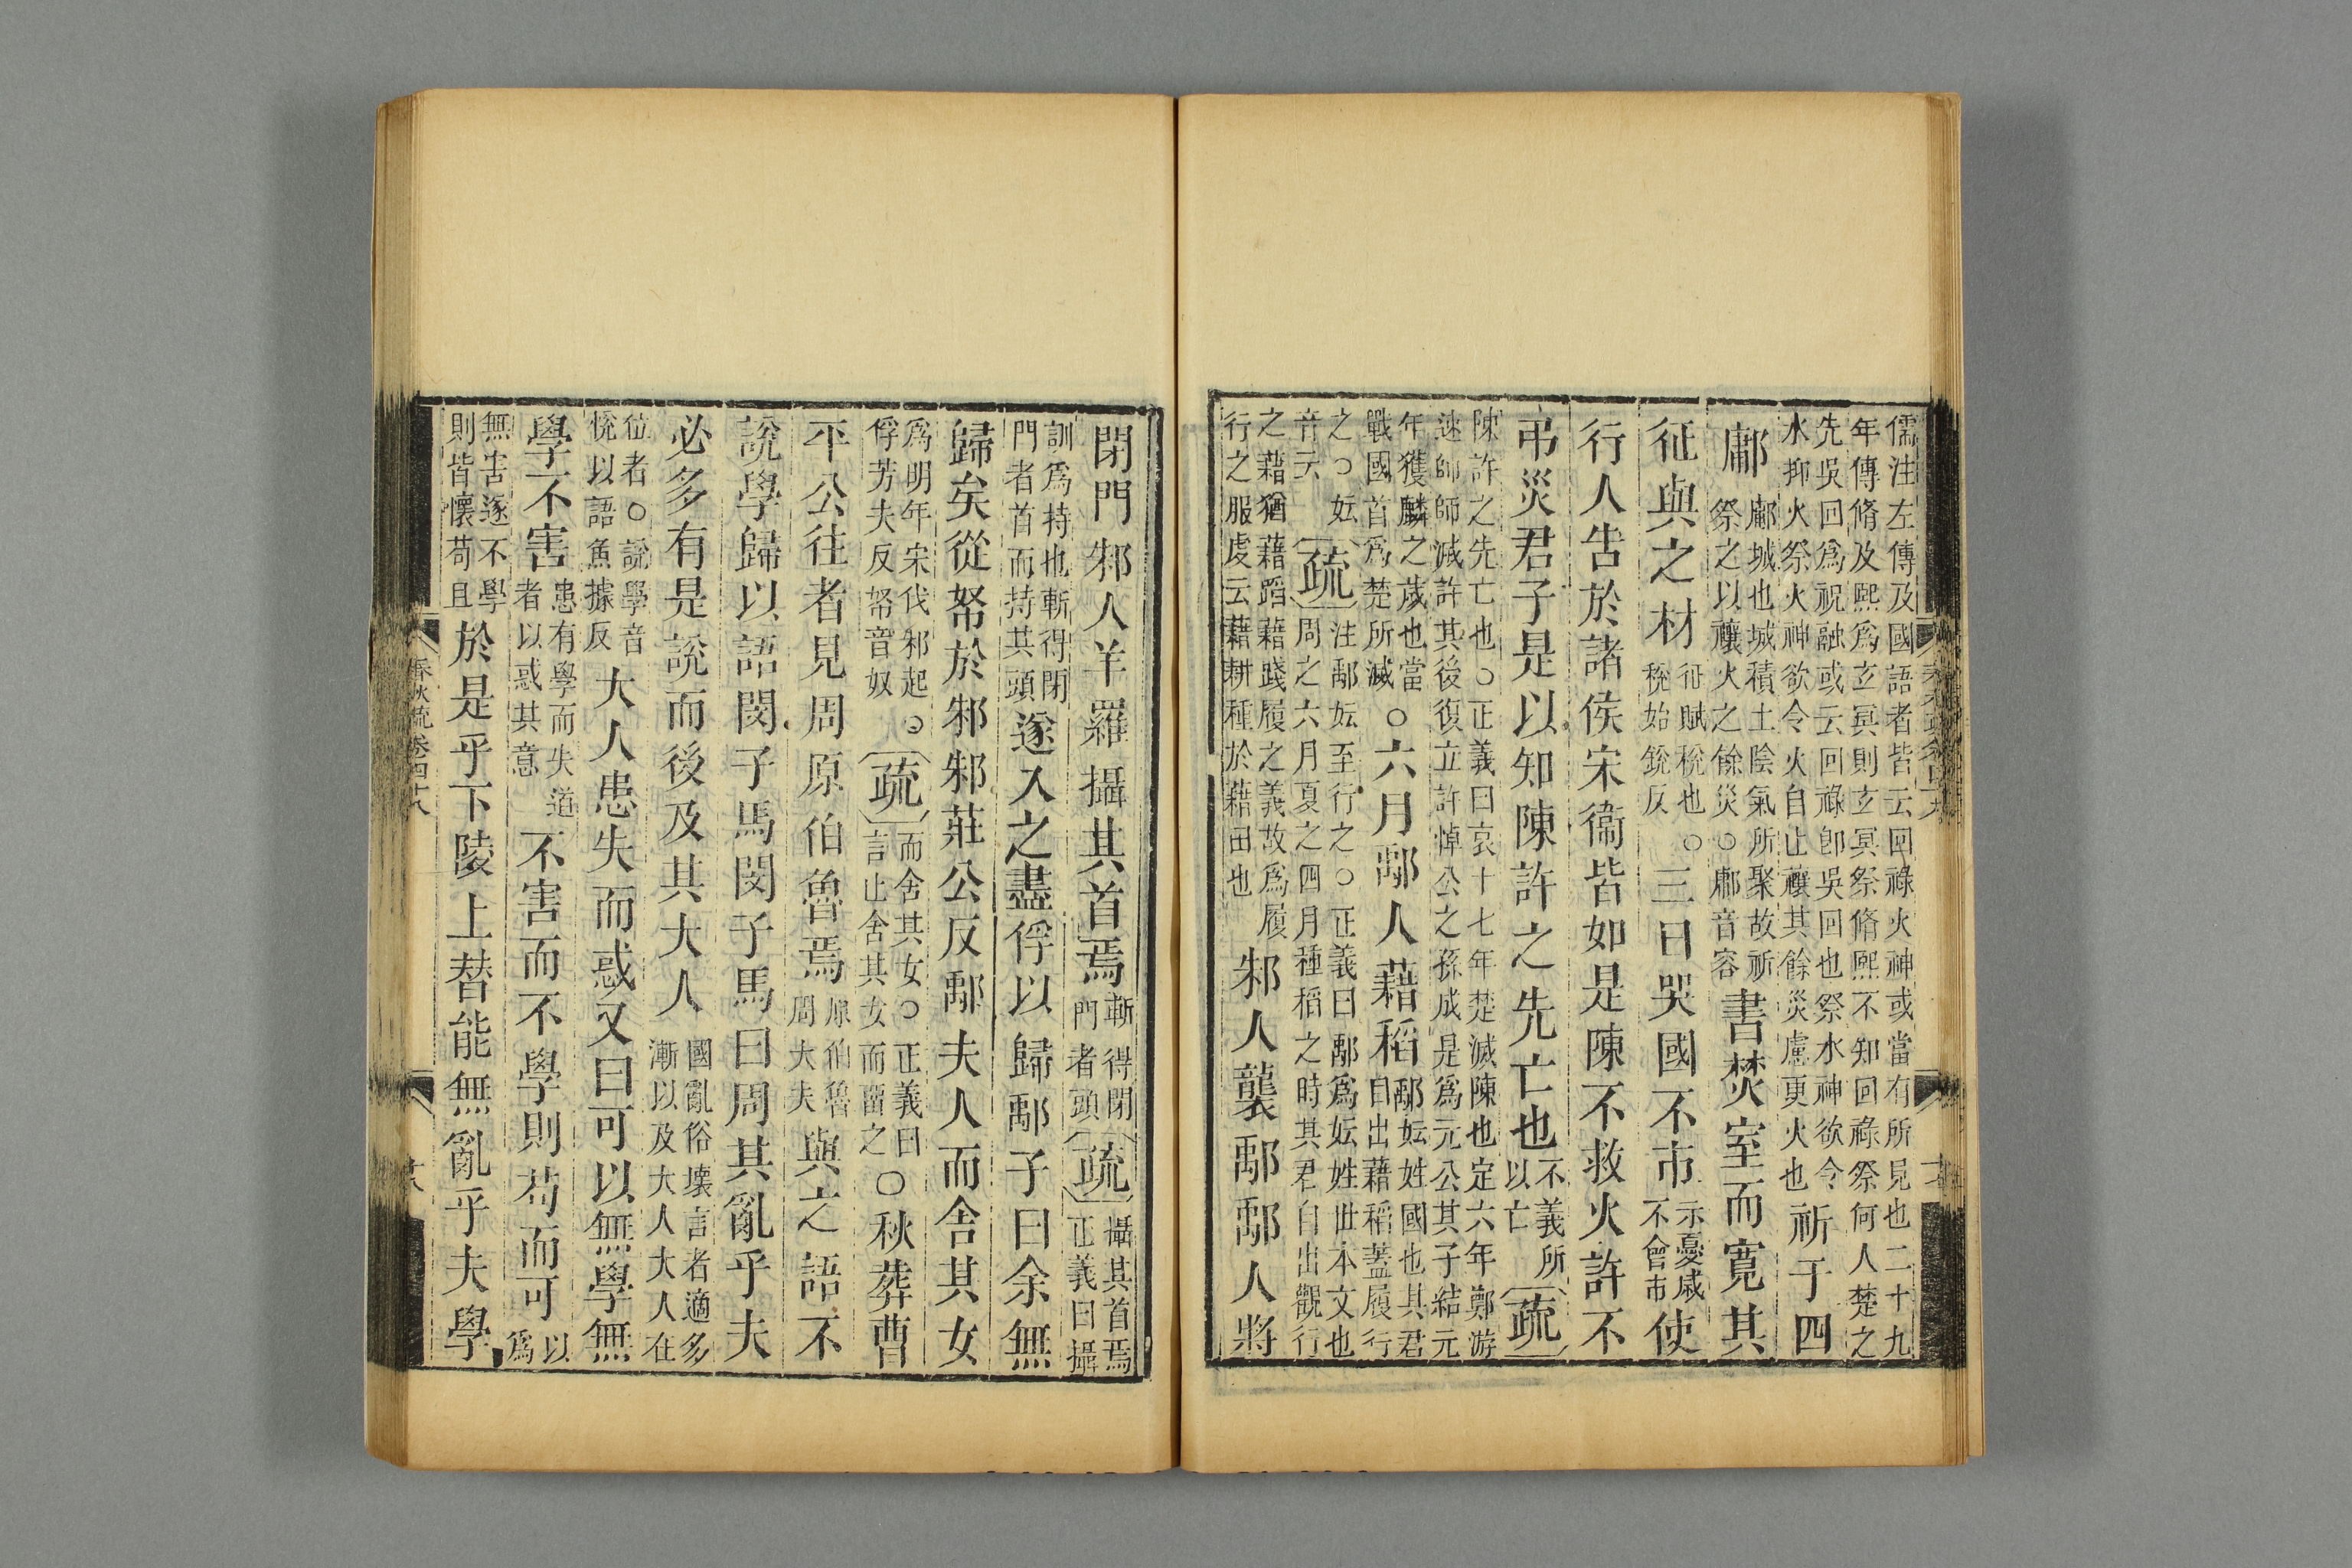 儒注左傳及國語者皆云回祿火神或當有所見也二十九
年傳脩及熙爲玄冥則玄冥祭脩熙不知回祿祭何人楚之
先吳回爲祝融或云回祿卽吳回也祭水神欲令
水抑火祭火神欲令火自止禳其餘災慮更火也
祈于四
鄘
鄘城也城積土陰氣所聚故祈
祭之以禳火之餘災○鄘音容
書焚室而寬其
征與之材
征賦稅也○
稅始銳反
三日哭國不市
示憂戚
不會市
使
行人告於諸侯宋衞皆如是陳不救火許不
弔災君子是以知陳許之先亡也
不義所
以亡
疏
陳許之先亡也○正義曰哀十七年楚滅陳也定六年鄭游
速帥師滅許其後復立許悼公之孫成是爲元公其子結元
年獲麟之歲也當
戰國首爲楚所滅
○六月鄅人藉稻
鄅妘姓國也其君
自出藉稻蓋履行
之○妘
音云
疏
注鄅妘至行之○正義曰鄅爲妘姓世本文也
周之六月夏之四月種稻之時其君自出觀行
之藉猶藉蹈藉踐履之義故爲履
行之服虔云藉耕種於藉田也
邾人襲鄅鄅人將
閉門邾人羊羅攝其首焉
斬得閉
門者頭
疏
攝其首焉
正義曰攝
訓爲持也斬得閉
門者首而持其頭
遂入之盡俘以歸鄅子曰余無
歸矣從帑於邾邾莊公反鄅夫人而舍其女
爲明年宋伐邾起○
俘芳夫反帑音奴
疏
而舍其女○正義曰
言止舍其女而留之
○秋葬曹
平公往者見周原伯魯焉
原伯魯
周大夫
與之語不
說學歸以語閔子馬閔子馬曰周其亂乎夫
必多有是說而後及其大人
國亂俗壞言者適多
漸以及大人大人在
位者○說學音
悅以語魚據反
大人患失而惑又曰可以無學無
學不害
患有學而失道
者以惑其意
不害而不學則苟而可
以
爲
無害遂不學
則皆懷苟且
於是乎下陵上替能無亂乎夫學
春秋疏卷四十八